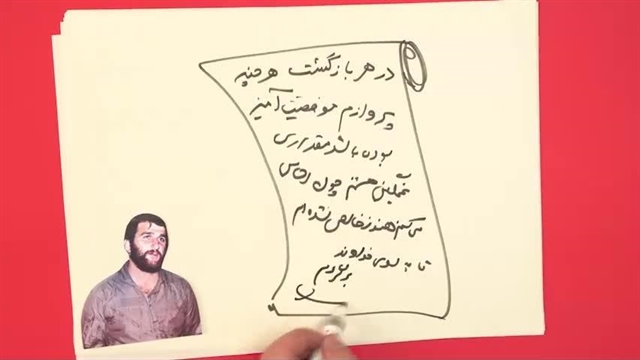 در هر بازگشت هر چند
پروازم موفقیت آمیز
بوده باشد مقداری
غمگین هستم چون احساس
می کنم هنوز خالص نشده ام
تا به سوی خداوند
برگردم